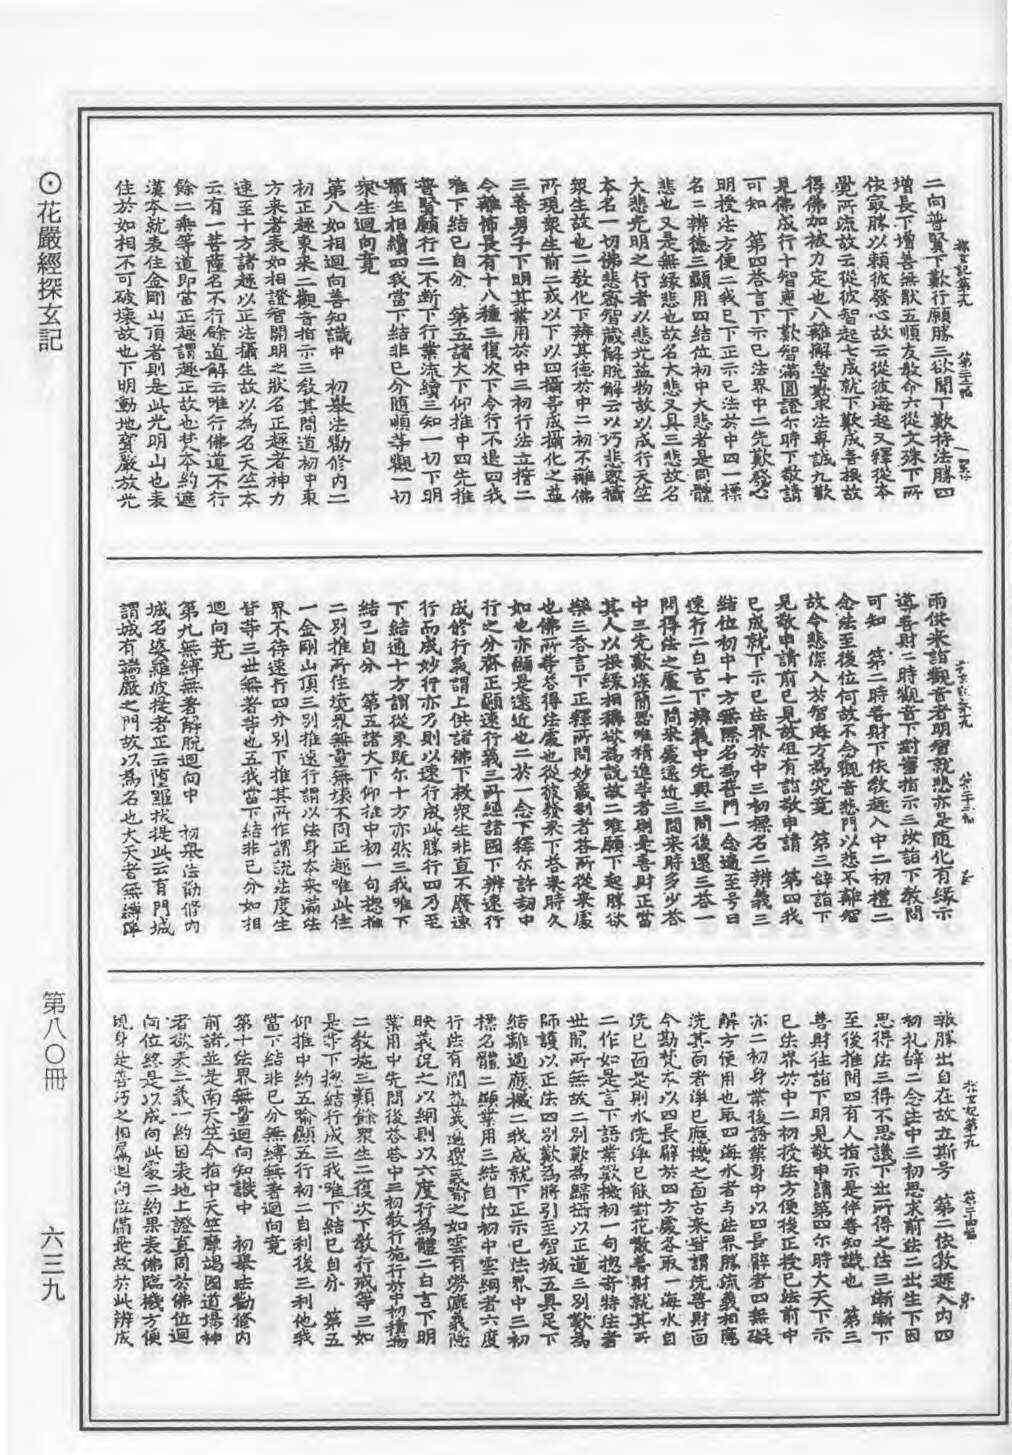 ⊙花嚴經探玄記
第八〇冊
六三九
二向普賢下歎行願勝三欲聞下歎持法勝四
增長下增善無猒五順友教命六從文殊下所
依最勝以賴彼發心故云從彼海起又釋從本
覺所流故云從彼智起七成就下歎成善根故
得佛加被力定也八離解怠下歎求法專誠九歎
見佛成行十智惠下歎智滿圓證尓時下敬請
可知　第四答言下示已法界中二先歎發心
明授法方便二我已下正示已法於中四一標
名二辨德三顯用四結位初中大悲者是同體
悲也又是無緣悲也故名大悲又具三悲故名
大悲光明之行者以悲光益物故以成行天竺
本名一切佛悲密智藏解脫解云以巧悲密攝
眾生故也二教化下辨其德於中二初不離佛
所現眾生前二或以下以四攝等成攝化之益
三善男子下明其業用於中三初行法立誓二
令離怖畏有十八種三復次下令行不退四我
唯下結已自分　第五諸大下仰推中四先推
普賢願行二不斷下行業流續三知一切下明
攝生相續四我當下結非已分隨順等觀一切
眾生迴向竟
第八如相迴向善知識中　初舉法勸修內二
初正趣東來二觀音指示三教其問道初中東
方來者表如相證智開明之狀名正趣者神力
速至十方諸趣以正法攝生故以為名天竺本
云有一菩薩名不行餘道解云唯行佛道不行
餘二乘等道即當正趣謂趣正故也梵本約遮
漢本就表住金剛山頂者則是此光明山也表
住於如相不可破壞故也下明動地寶嚴放光
雨供來詣觀音者明智就悲亦是隨化有緣示
導善財二時觀音下對審指示三汝詣下教問
可知　第二時善財下依教趣入中二初禮二
念法至後位何故不念觀音悲門以悲不離智
故今悲深入於智海方為究竟　第三辭詣下
見敬申請前已見故但有諮敬申請　第四我
已成就下示已法界於中三初標名二辨義三
結位初中十方無際名為普門一念遍至号曰
速行二白言下辨義中先興三問後還三答一
問得法之處二問來處遠近三問來時多少答
中三先歎深簡愚唯精進等者則是善財正當
其人以根緣相稱欲為說故二唯願下起勝欲
樂三答言下正釋所問妙藏刹者答所從來處
也佛所等答得法處也從彼發來下答來時久
如也亦顯是遠近也二於一念下釋尓許劫中
行之分齊正顯速行義三所經諸國下辨速行
成修行義謂上供諸佛下救眾生非直不廢速
行而成妙行亦乃則以速行成此勝行四乃至
下結通十方謂從東既尓十方亦然三我唯下
結已自分　第五諸大下仰推中初一句揔推
二別推所住境界無量無壞不同正趣唯此住
一金剛山頂三別推速行謂以法身本來滿法
界不待速行四分別下推其所作謂說法度生
等等三世無著等也五我當下結非已分如相
迴向竟
第九無縛無著解脫迴向中　初舉法勸修內
城名婆羅波提者正云墮羅拔提此云有門城
謂城有端嚴之門故以為名也大天者無縛解
報勝出自在故立斯号　第二依教趣入內四
初礼辞二念法中三初思求前法二出生下因
思得法三得不思議下出所得之法三漸漸下
至後推問四有人指示是伴善知識也　第三
善財往詣下明見敬申請第四尓時大天下示
已法界於中二初授法方便後正授已法前中
亦二初身業後語業身中以四長臂者四無礙
解方便用也取四海水者与法界勝流義相應
洗其面者淨已應機之面古來皆謂洗善財面
今勘梵本以四長臂於四方處各取一海水自
洗已面是則水洗淨已能對花散善財就其所
二作如是言下語業歎機初一句揔奇特法者
世間所無故二別歎為歸攝以正道三別歎為
師護以正法四別歎為將引至智城五具足下
結難遇應機二我成就下正示已法界中三初
標名體二顯業用三結自位初中雲網者六度
行法有潤益義遍覆義喻之如雲有勞漉義隱
映義況之以網則以六度行為體二白言下明
業用中先問後答答中三初散行施行於中初積物
二教施三類餘眾生二復次下教行戒等三如
是等下揔結行成三我唯下結已自分　第五
仰推中約五喻顯五行初二自利後三利他我
當下結非已分無縛無著迴向竟
第十法界無量迴向知識中　初舉法勸修內
前諸並是南天竺今指中天竺摩竭國道場神
者欲表二義一約因表地上證真同於佛位迴
向位終是以成向此處二約果表佛臨機方便
現身是善巧之相屬迴向位滿是故於此辨成